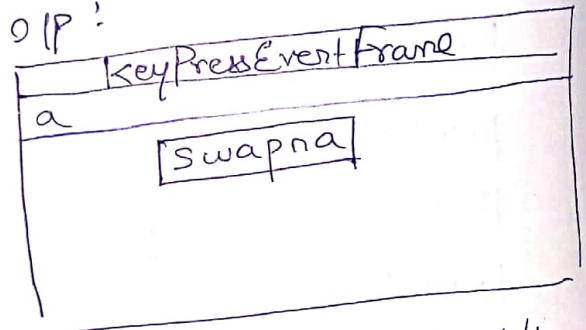 O/P :
KeyPressEventFrame
a
Swapna